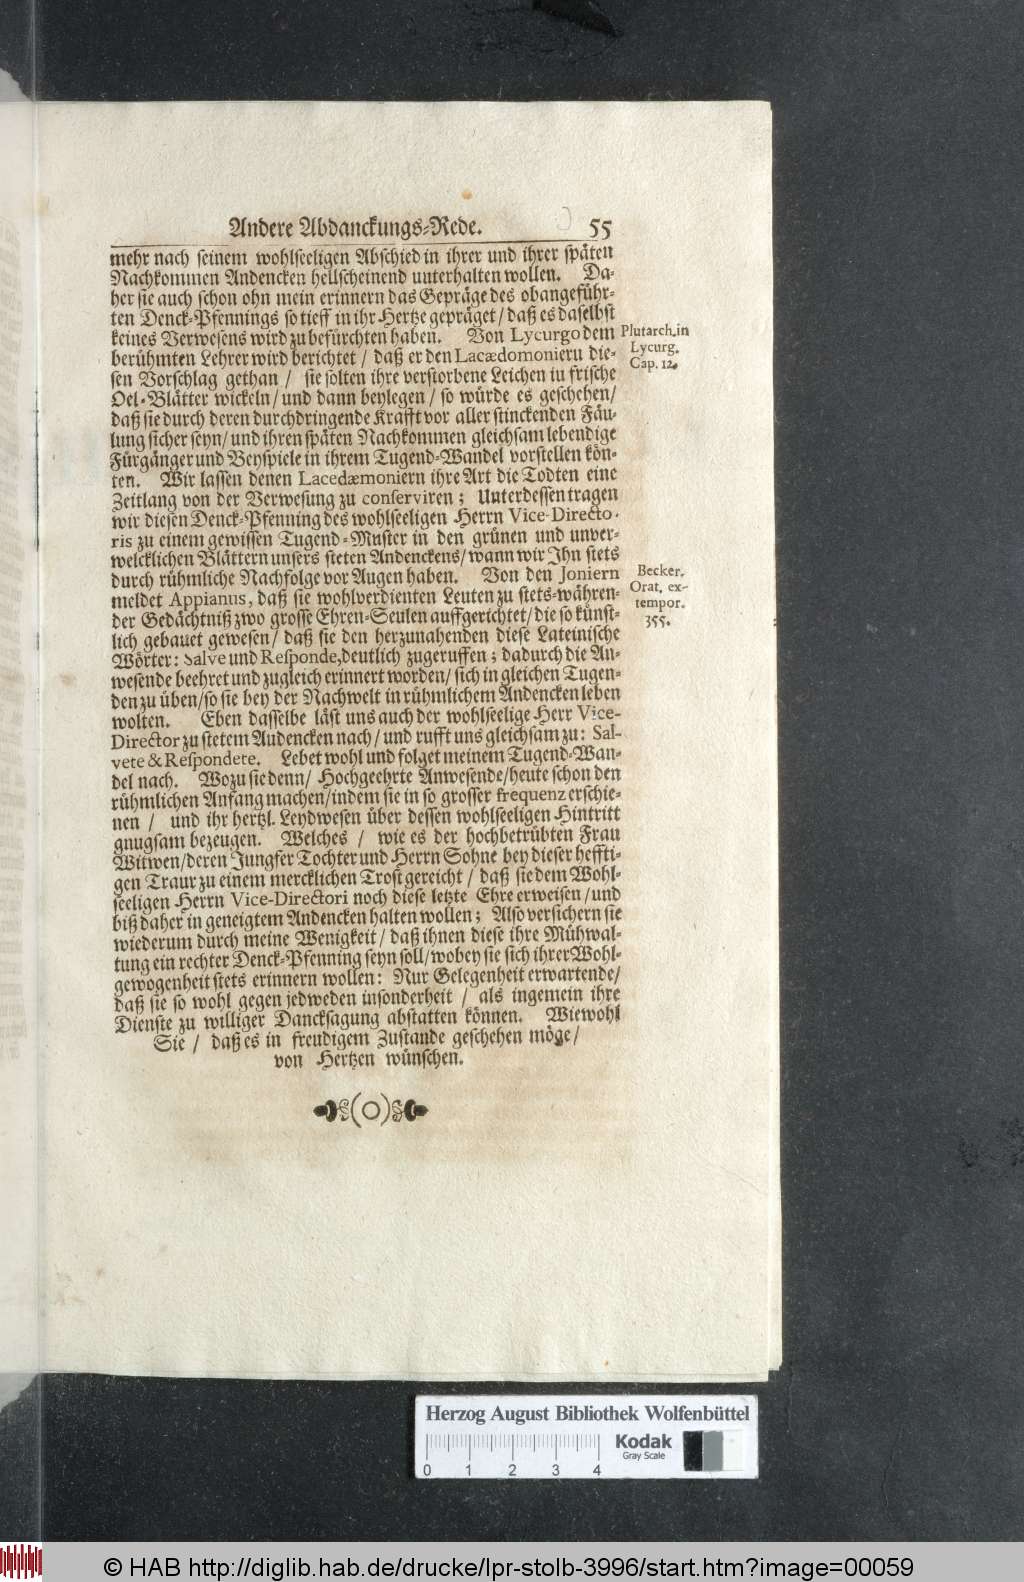 Andere Abdanckungs-Rede. 55
mehr nach seinem wohlseeligen Abschied in ihrer und ihrer späten
Nachkommen Andencken hellscheinend unterhalten wollen. Da-
her sie auch schon ohn mein erinnern das Gepräge des obangeführ-
ten Denck-Pfennings so tieff in ihr Hertze gepräget / daß es daselbst
keines Verwesens wird zu befürchten haben. Von Lycurgo dem
berühmten Lehrer wird berichtet / daß er den Lacædomoniern die-
sen Vorschlag gethan / sie solten ihre verstorbene Leichen in frische
Oel-Blätter wickeln / und dann beylegen / so würde es geschehen /
daß sie durch deren durchdringende Krafft vor aller stinckenden Fäu-
lung sicher seyn / und ihren späten Nachkommen gleichsam lebendige
Fürgänger und Beyspiele in ihrem Tugend-Wandel vorstellen kön-
ten. Wir lassen denen Lacedæmoniern ihre Art die Todten eine
Zeitlang von der Verwesung zu conserviren ; Unterdessen tragen
wir diesen Denck-Pfenning des wohlseeligen Herrn Vice-Directo-
ris zu einem gewissen Tugend-Muster in den grünen und unver-
welcklichen Blättern unsers steten Andenckens / wann wir Ihn stets
durch rühmliche Nachfolge vor Augen haben. Von den Joniern
meldet Appianus, daß sie wohlverdienten Leuten zu stets-währen-
der Gedächtniß zwo grosse Ehren-Seulen auffgerichtet / die so künst-
lich gebauet gewesen / daß sie den herzunahenden diese Lateinische
Wörter: Salve und Responde, deutlich zugeruffen ; dadurch die An-
wesende beehret und zugleich erinnert worden / sich in gleichen Tugen-
den zu üben / so sie bey der Nachwelt in rühmlichem Andencken leben
wolten. Eben dasselbe läst uns auch der wohlseelige Herr Vice-
Director zu stetem Andencken nach / und rufft uns gleichsam zu: Sal-
vete & Respondete. Lebet wohl und folget meinem Tugend-Wan-
del nach. Wozu sie denn / Hochgeehrte Anwesende / heute schon den
rühmlichen Anfang machen / indem sie in so grosser frequenz erschie-
nen / und ihr hertzl. Leydwesen über dessen wohlseeligen Hintritt
gnugsam bezeugen. Welches / wie es der hochbetrübten Frau
Witwen / deren Jungfer Tochter und Herrn Sohne bey dieser heffti-
gen Traur zu einem mercklichen Trost gereicht / daß sie dem Wohl-
seeligen Herrn Vice-Directori noch diese letzte Ehre erweisen / und
biß daher in geneigtem Andencken halten wollen ; Also versichern sie
wiederum durch meine Wenigkeit / daß ihnen diese ihre Mühwal-
tung ein rechter Denck-Pfenning seyn soll / wobey sie sich ihrer Wohl-
gewogenheit stets erinnern wollen: Nur Gelegenheit erwartende /
daß sie so wohl gegen jedweden insonderheit / als ingemein ihre
Dienste zu williger Dancksagung abstatten können. Wiewohl
Sie / daß es in freudigem Zustande geschehen möge /
von Hertzen wünschen.
Plutarch. in
Lycurg.
Cap. 12.
Becker.
Orat. ex-
tempor.
355.
Herzog August Bibliothek Wolfenbüttel
Kodak
Gray Scale
0 1 2 3 4
© HAB http://diglib.hab.de/drucke/lpr-stolb-3996/start.htm?image=00059